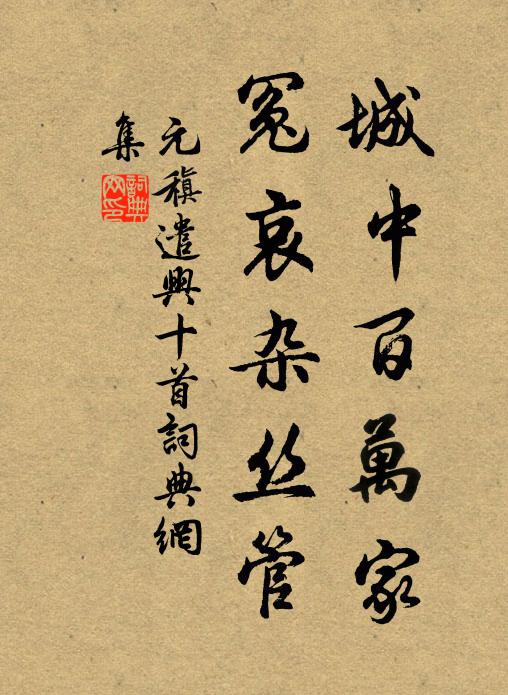 城中百萬家
冤哀杂丝管
元稹遣興十首詞典網
集
詞典
网印